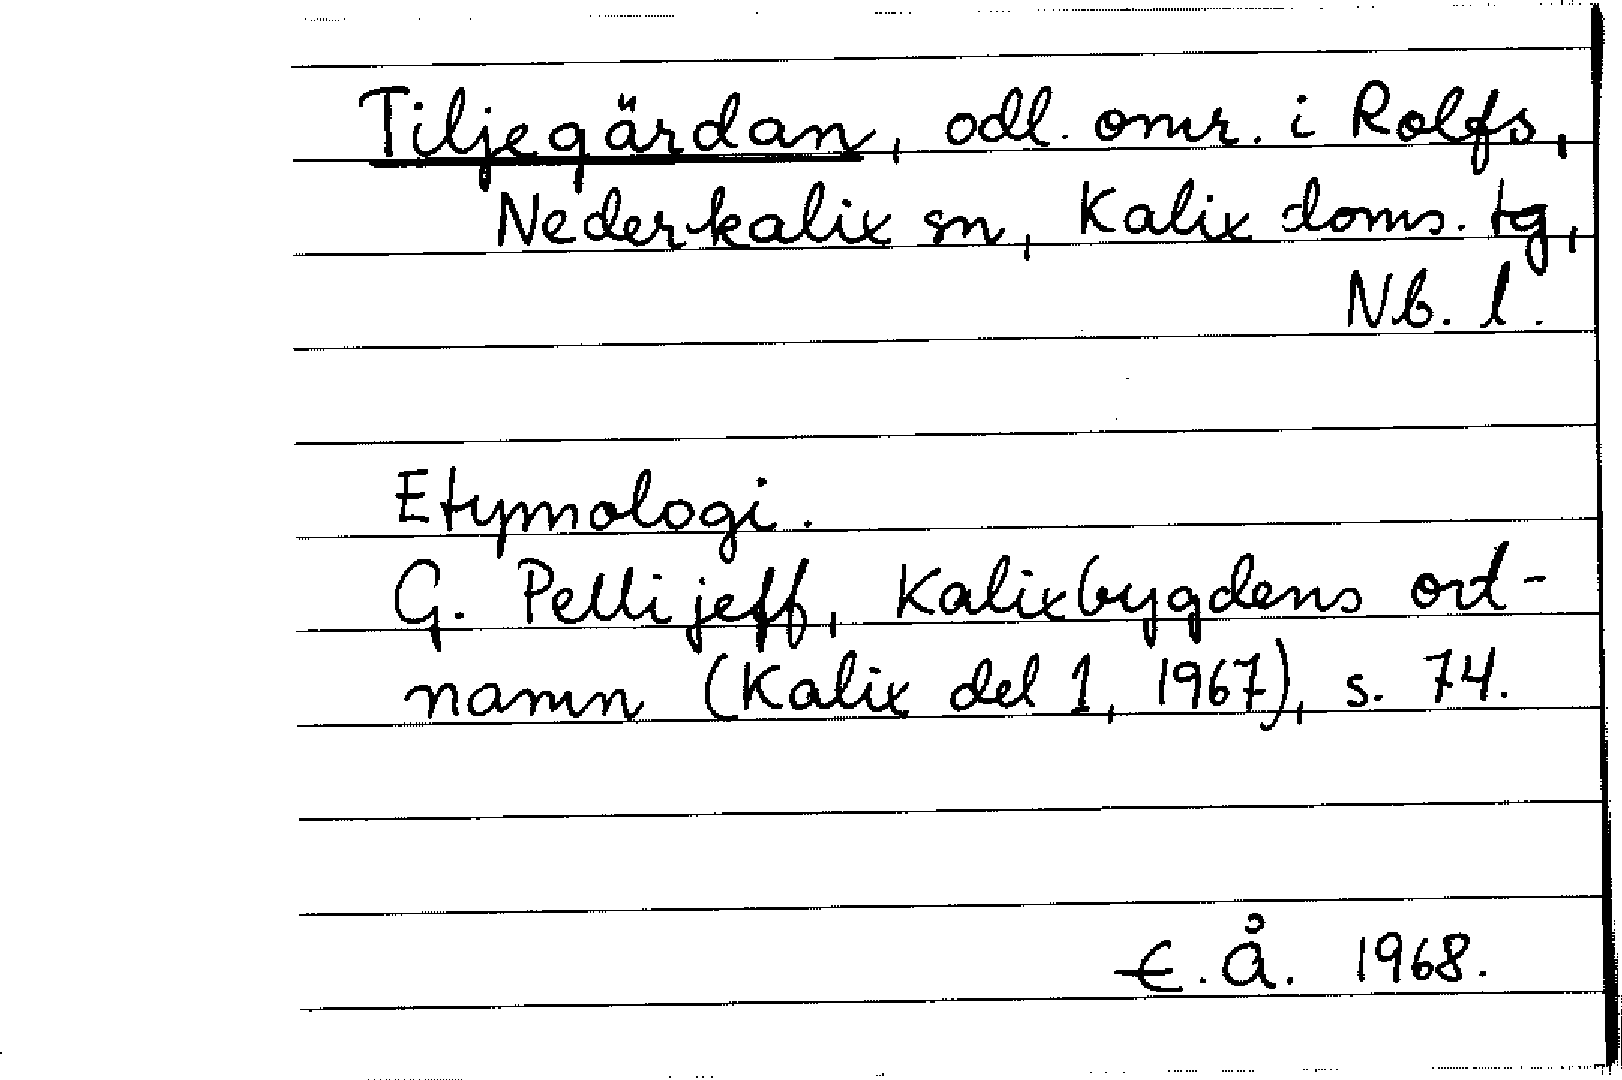 Tiljegärdan, odl. omr. i Rolfs,
Nederkalix sn, Kalix doms. tg,
Nb. l.
Etymologi.
G. Pellijeff, Kalixbygdens ort-
namn (Kalix del 1, 1967), s. 74.
E. Å. 1968.